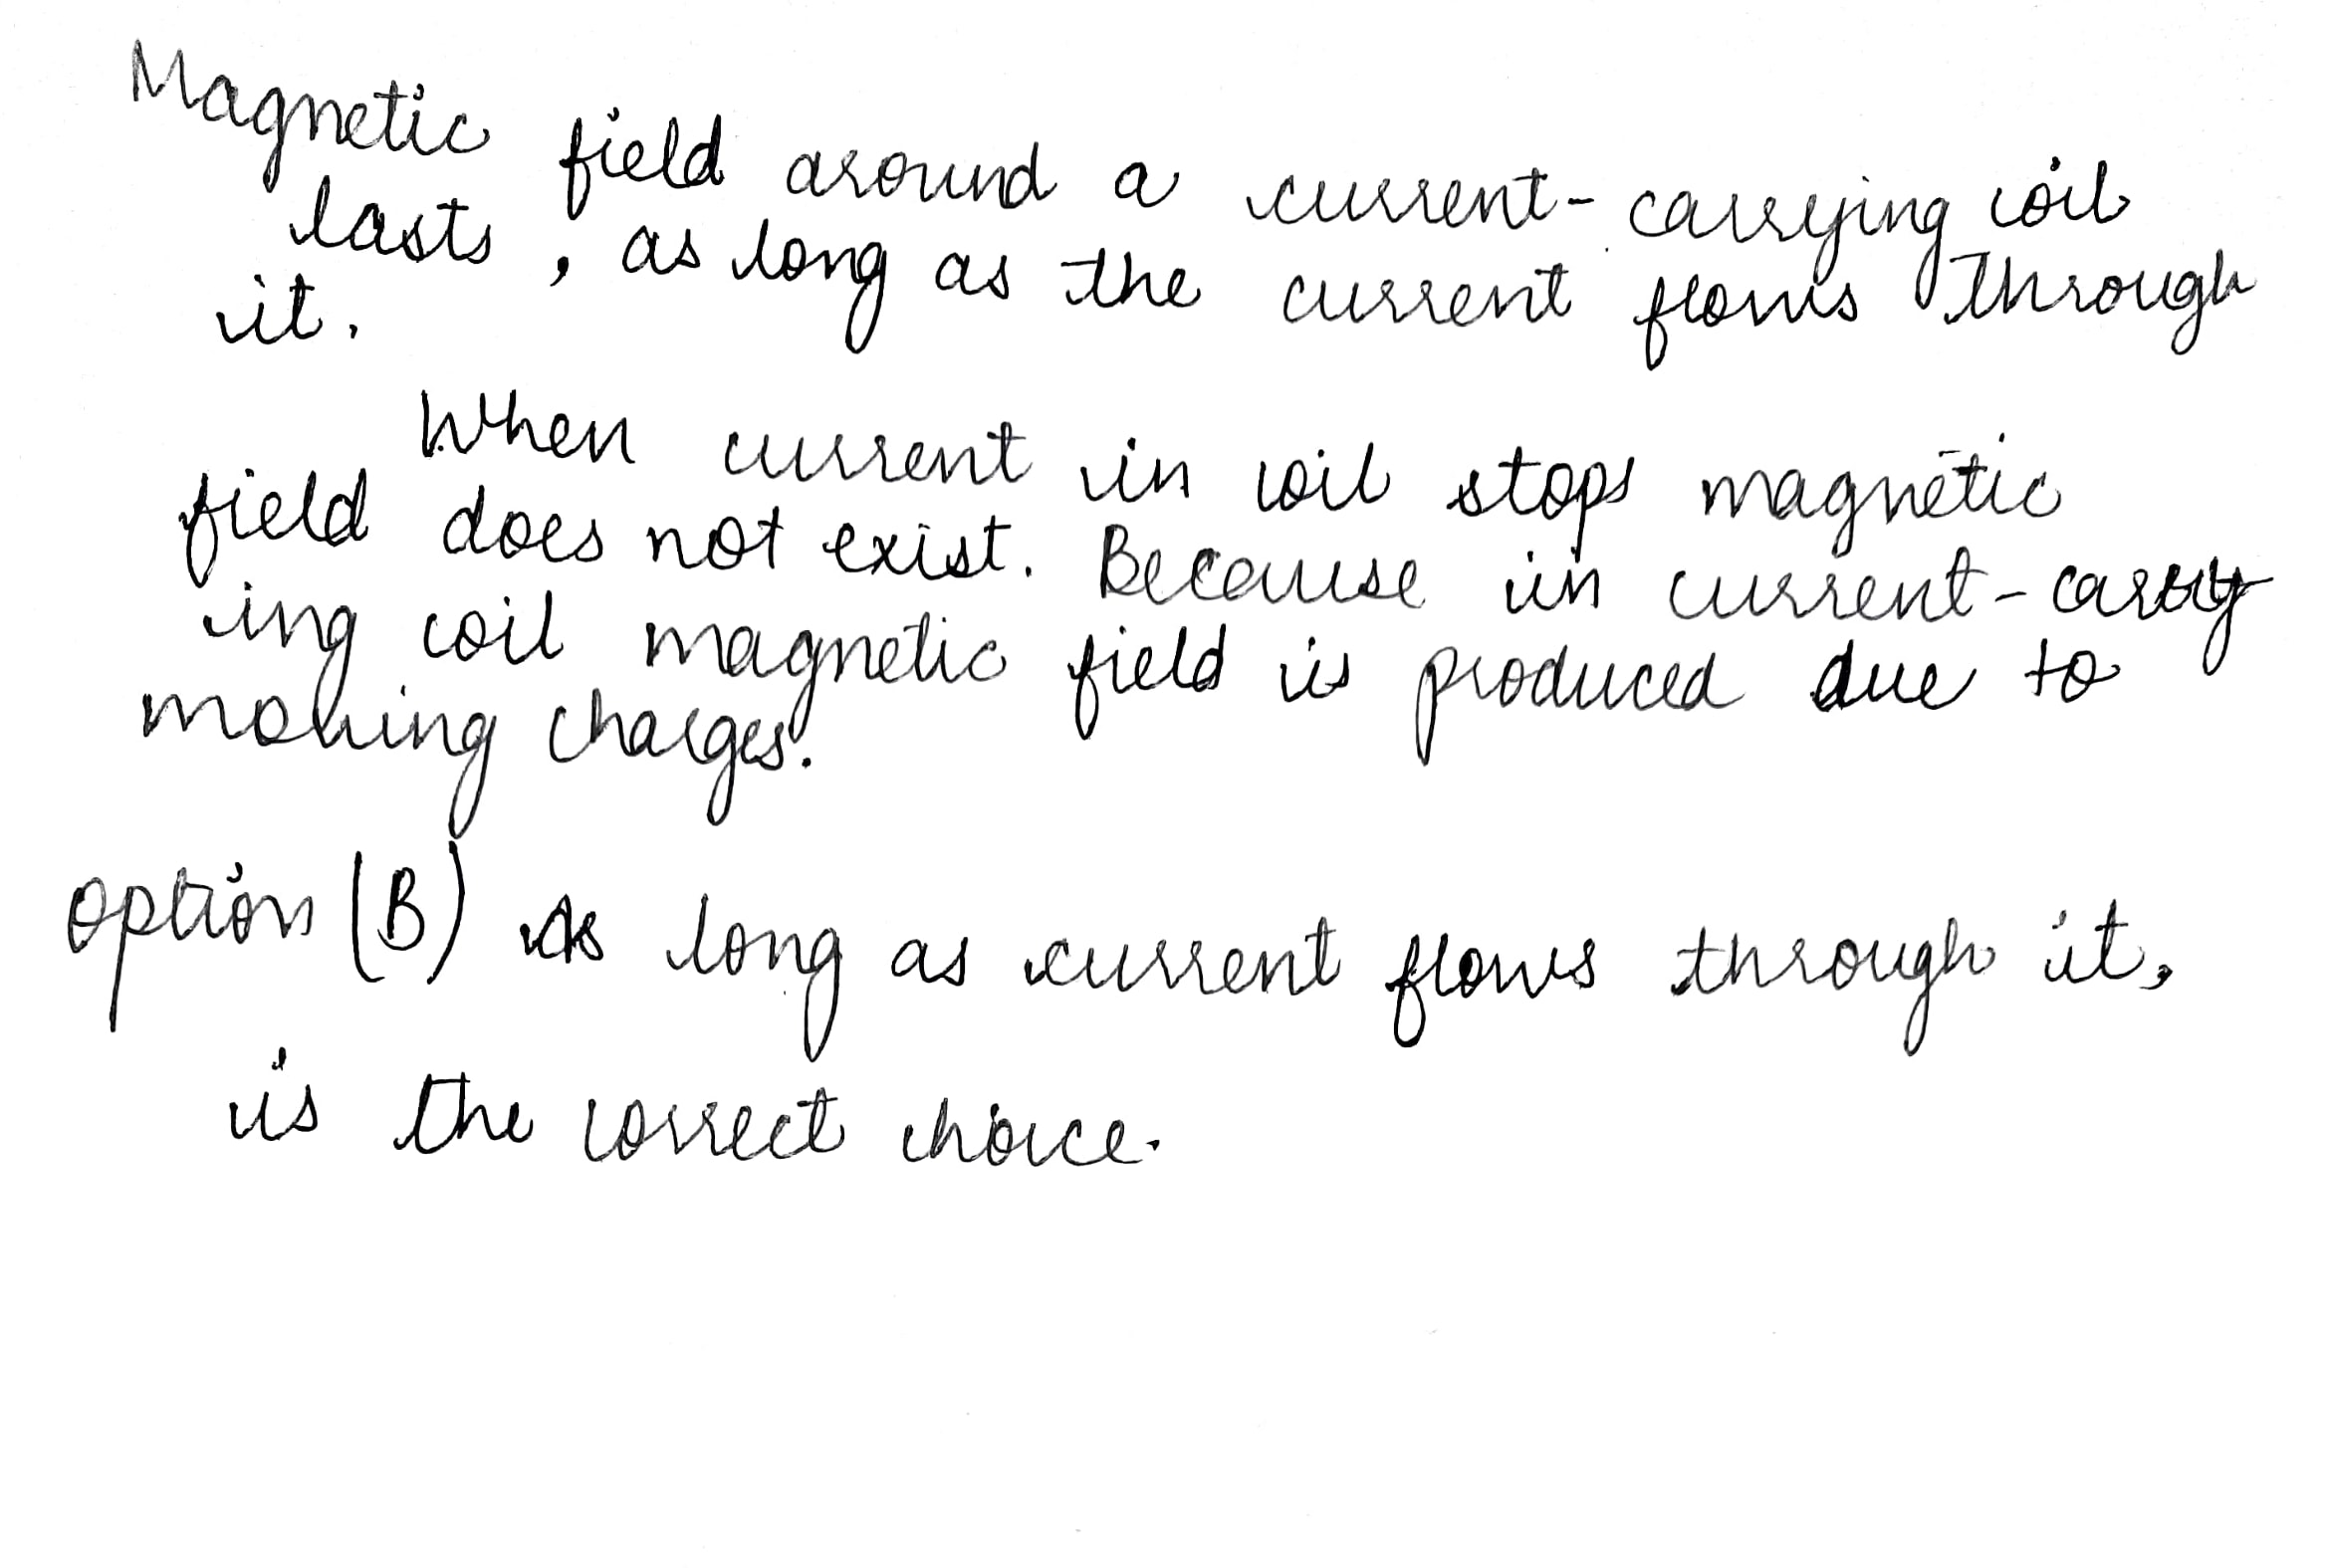 Magnetic field around a current-carrying coil
lasts, as long as the current flows through
it.
When current in coil stops magnetic
field does not exist. Because in current-carry
ing coil magnetic field is produced due to
moving charges.
option (B) As long as current flows through it,
is the correct choice.